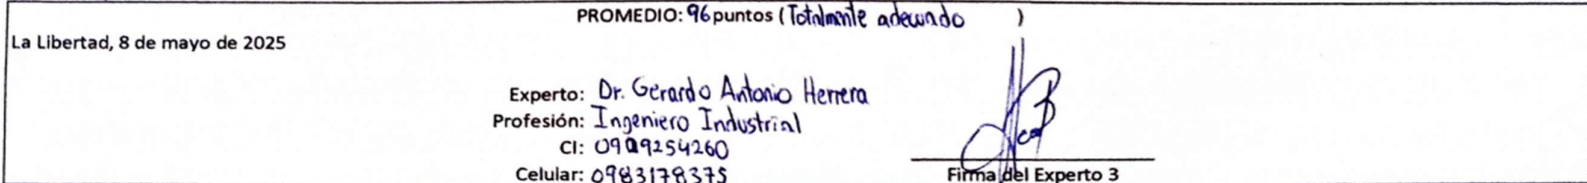 PROMEDIO: 96 puntos (Totalmente adecuado )
La Libertad, 8 de mayo de 2025
Experto: Dr. Gerardo Antonio Herrera
Profesión: Ingeniero Industrial
CI: 0909254260
Celular: 0983178375
Firma del Experto 3